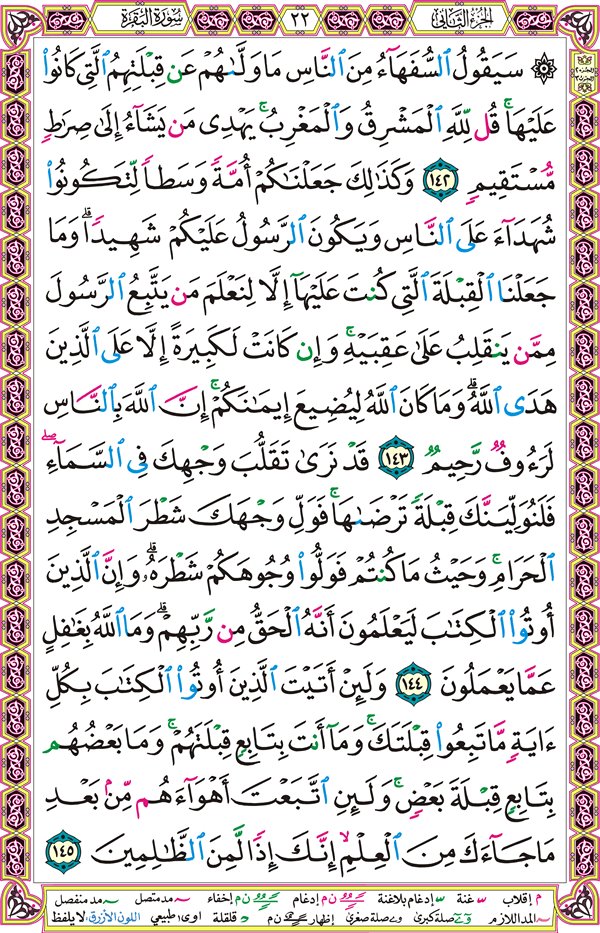 الجزء الثاني ٢٢ سورة البقرة
۞ سَيَقُولُ ٱلسُّفَهَآءُ مِنَ ٱلنَّاسِ مَا وَلَّىٰهُمْ عَن قِبْلَتِهِمُ ٱلَّتِى كَانُوا۟
عَلَيْهَا ۚ قُل لِّلَّهِ ٱلْمَشْرِقُ وَٱلْمَغْرِبُ ۚ يَهْدِى مَن يَشَآءُ إِلَىٰ صِرَٰطٍ
مُّسْتَقِيمٍ ١٤٢ وَكَذَٰلِكَ جَعَلْنَٰكُمْ أُمَّةً وَسَطًا لِّتَكُونُوا۟
شُهَدَآءَ عَلَى ٱلنَّاسِ وَيَكُونَ ٱلرَّسُولُ عَلَيْكُمْ شَهِيدًا ۗ وَمَا
جَعَلْنَا ٱلْقِبْلَةَ ٱلَّتِى كُنتَ عَلَيْهَآ إِلَّا لِنَعْلَمَ مَن يَتَّبِعُ ٱلرَّسُولَ
مِمَّن يَنقَلِبُ عَلَىٰ عَقِبَيْهِ ۚ وَإِن كَانَتْ لَكَبِيرَةً إِلَّا عَلَى ٱلَّذِينَ
هَدَى ٱللَّهُ ۗ وَمَا كَانَ ٱللَّهُ لِيُضِيعَ إِيمَٰنَكُمْ ۚ إِنَّ ٱللَّهَ بِٱلنَّاسِ
لَرَءُوفٌ رَّحِيمٌ ١٤٣ قَدْ نَرَىٰ تَقَلُّبَ وَجْهِكَ فِى ٱلسَّمَآءِ ۖ
فَلَنُوَلِّيَنَّكَ قِبْلَةً تَرْضَىٰهَا ۚ فَوَلِّ وَجْهَكَ شَطْرَ ٱلْمَسْجِدِ
ٱلْحَرَامِ ۚ وَحَيْثُ مَا كُنتُمْ فَوَلُّوا۟ وُجُوهَكُمْ شَطْرَهُۥ ۗ وَإِنَّ ٱلَّذِينَ
أُوتُوا۟ ٱلْكِتَٰبَ لَيَعْلَمُونَ أَنَّهُ ٱلْحَقُّ مِن رَّبِّهِمْ ۗ وَمَا ٱللَّهُ بِغَٰفِلٍ
عَمَّا يَعْمَلُونَ ١٤٤ وَلَئِنْ أَتَيْتَ ٱلَّذِينَ أُوتُوا۟ ٱلْكِتَٰبَ بِكُلِّ
ءَايَةٍ مَّا تَبِعُوا۟ قِبْلَتَكَ ۚ وَمَآ أَنتَ بِتَابِعٍ قِبْلَتَهُمْ ۚ وَمَا بَعْضُهُم
بِتَابِعٍ قِبْلَةَ بَعْضٍ ۚ وَلَئِنِ ٱتَّبَعْتَ أَهْوَآءَهُم مِّنۢ بَعْدِ
مَا جَآءَكَ مِنَ ٱلْعِلْمِ ۙ إِنَّكَ إِذًا لَّمِنَ ٱلظَّٰلِمِينَ ١٤٥
م إقلاب غنة إدغام بلاغنة ن م إدغام إخفاء مد متصل مد منفصل
المد اللازم صلة كبرى صلة صغرى إظهار ن م قلقلة اوى طبيعي اللون الأزرق لا يلفظ